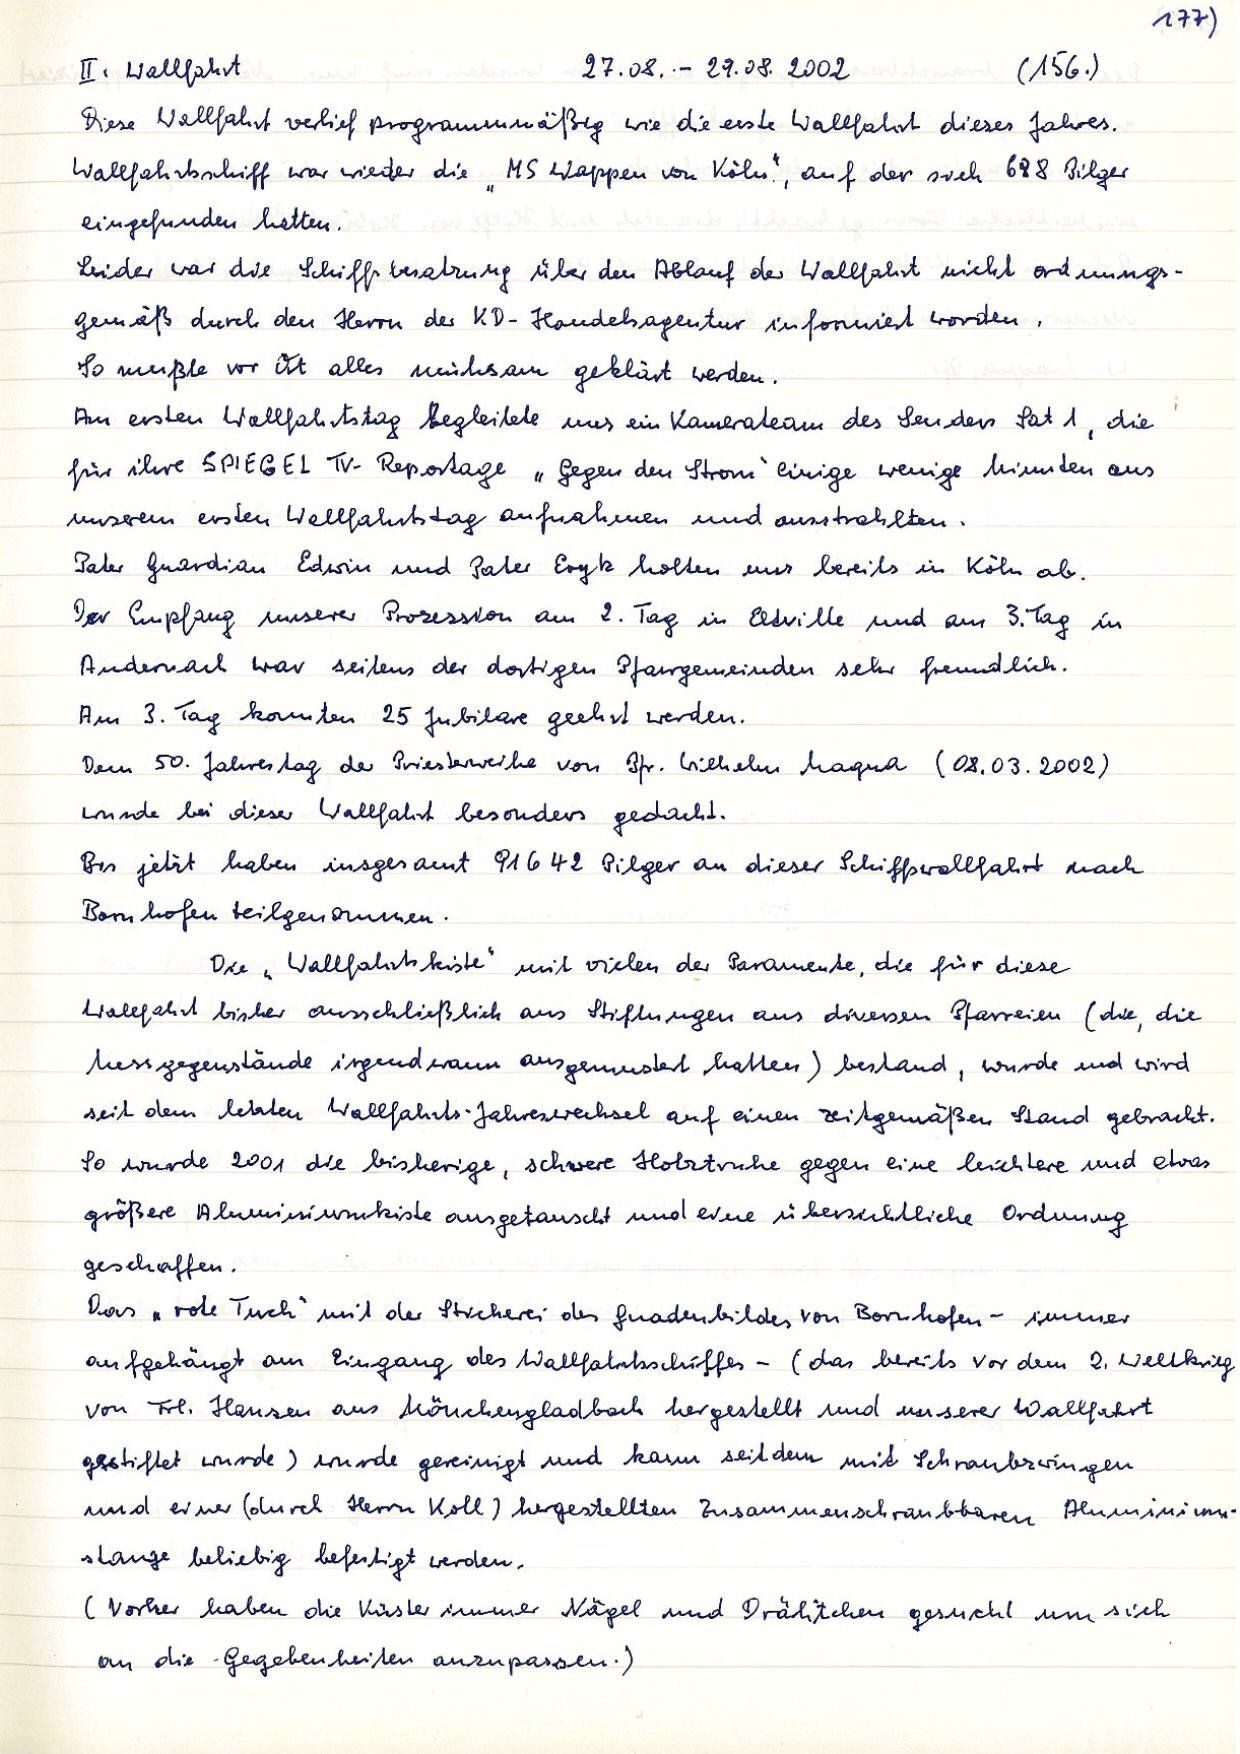 177)
II. Wallfahrt 27.08. - 29.08. 2002 (156.)
Diese Wallfahrt verlief programmmäßig wie die erste Wallfahrt dieses Jahres.
Wallfahrtsschiff war wieder die „MS Wappen von Köln", auf der sich 688 Pilger
eingefunden hatten.
Leider war die Schiffsbesatzung über den Ablauf der Wallfahrt nicht ordnungs-
gemäß durch den Herrn der KD-Handelsagentur informiert worden.
So mußte vor Ort alles mühsam geklärt werden.
Am ersten Wallfahrtstag begleitete uns ein Kamerateam des Senders Sat 1, die
für ihre SPIEGEL TV-Reportage „Gegen den Strom" einige wenige Minuten aus
unserem ersten Wallfahrtstag aufnahmen und ausstrahlten.
Pater Guardian Edwin und Pater Eryk holten uns bereits in Köln ab.
Der Empfang unserer Prozession am 2. Tag in Eltville und am 3. Tag in
Andernach war seitens der dortigen Pfarrgemeinden sehr freundlich.
Am 3. Tag konnten 25 Jubilare geehrt werden.
Dem 50. Jahrestag der Priesterweihe von Pfr. Wilhelm Maqua (08.03.2002)
wurde bei dieser Wallfahrt besonders gedacht.
Bis jetzt haben insgesamt 91642 Pilger an dieser Schiffswallfahrt nach
Bornhofen teilgenommen.
Die „Wallfahrtskiste" mit vielen der Paramente, die für diese
Wallfahrt bisher ausschließlich aus Stiftungen aus diversen Pfarreien (die, die
Messgegenstände irgendwann ausgemustert hatten) bestand, wurde und wird
seit dem letzten Wallfahrts-Jahreswechsel auf einen zeitgemäßen Stand gebracht.
So wurde 2001 die bisherige, schwere Holztruhe gegen eine leichtere und etwas
größere Aluminiumkiste ausgetauscht und eine übersichtliche Ordnung
geschaffen.
Das „rote Tuch" mit der Stickerei des Gnadenbildes von Bornhofen - immer
aufgehängt am Eingang des Wallfahrtsschiffes - (das bereits vor dem 2. Weltkrieg
von Frl. Hansen aus Mönchengladbach hergestellt und unserer Wallfahrt
gestiftet wurde) wurde gereinigt und kann seitdem mit Schraubzwingen
und einer (durch Herrn Koll) hergestellten zusammenschraubbaren Aluminium-
stange beliebig befestigt werden.
(Vorher haben die Küster immer Nägel und Drähtchen gesucht um sich
an die Gegebenheiten anzupassen.)